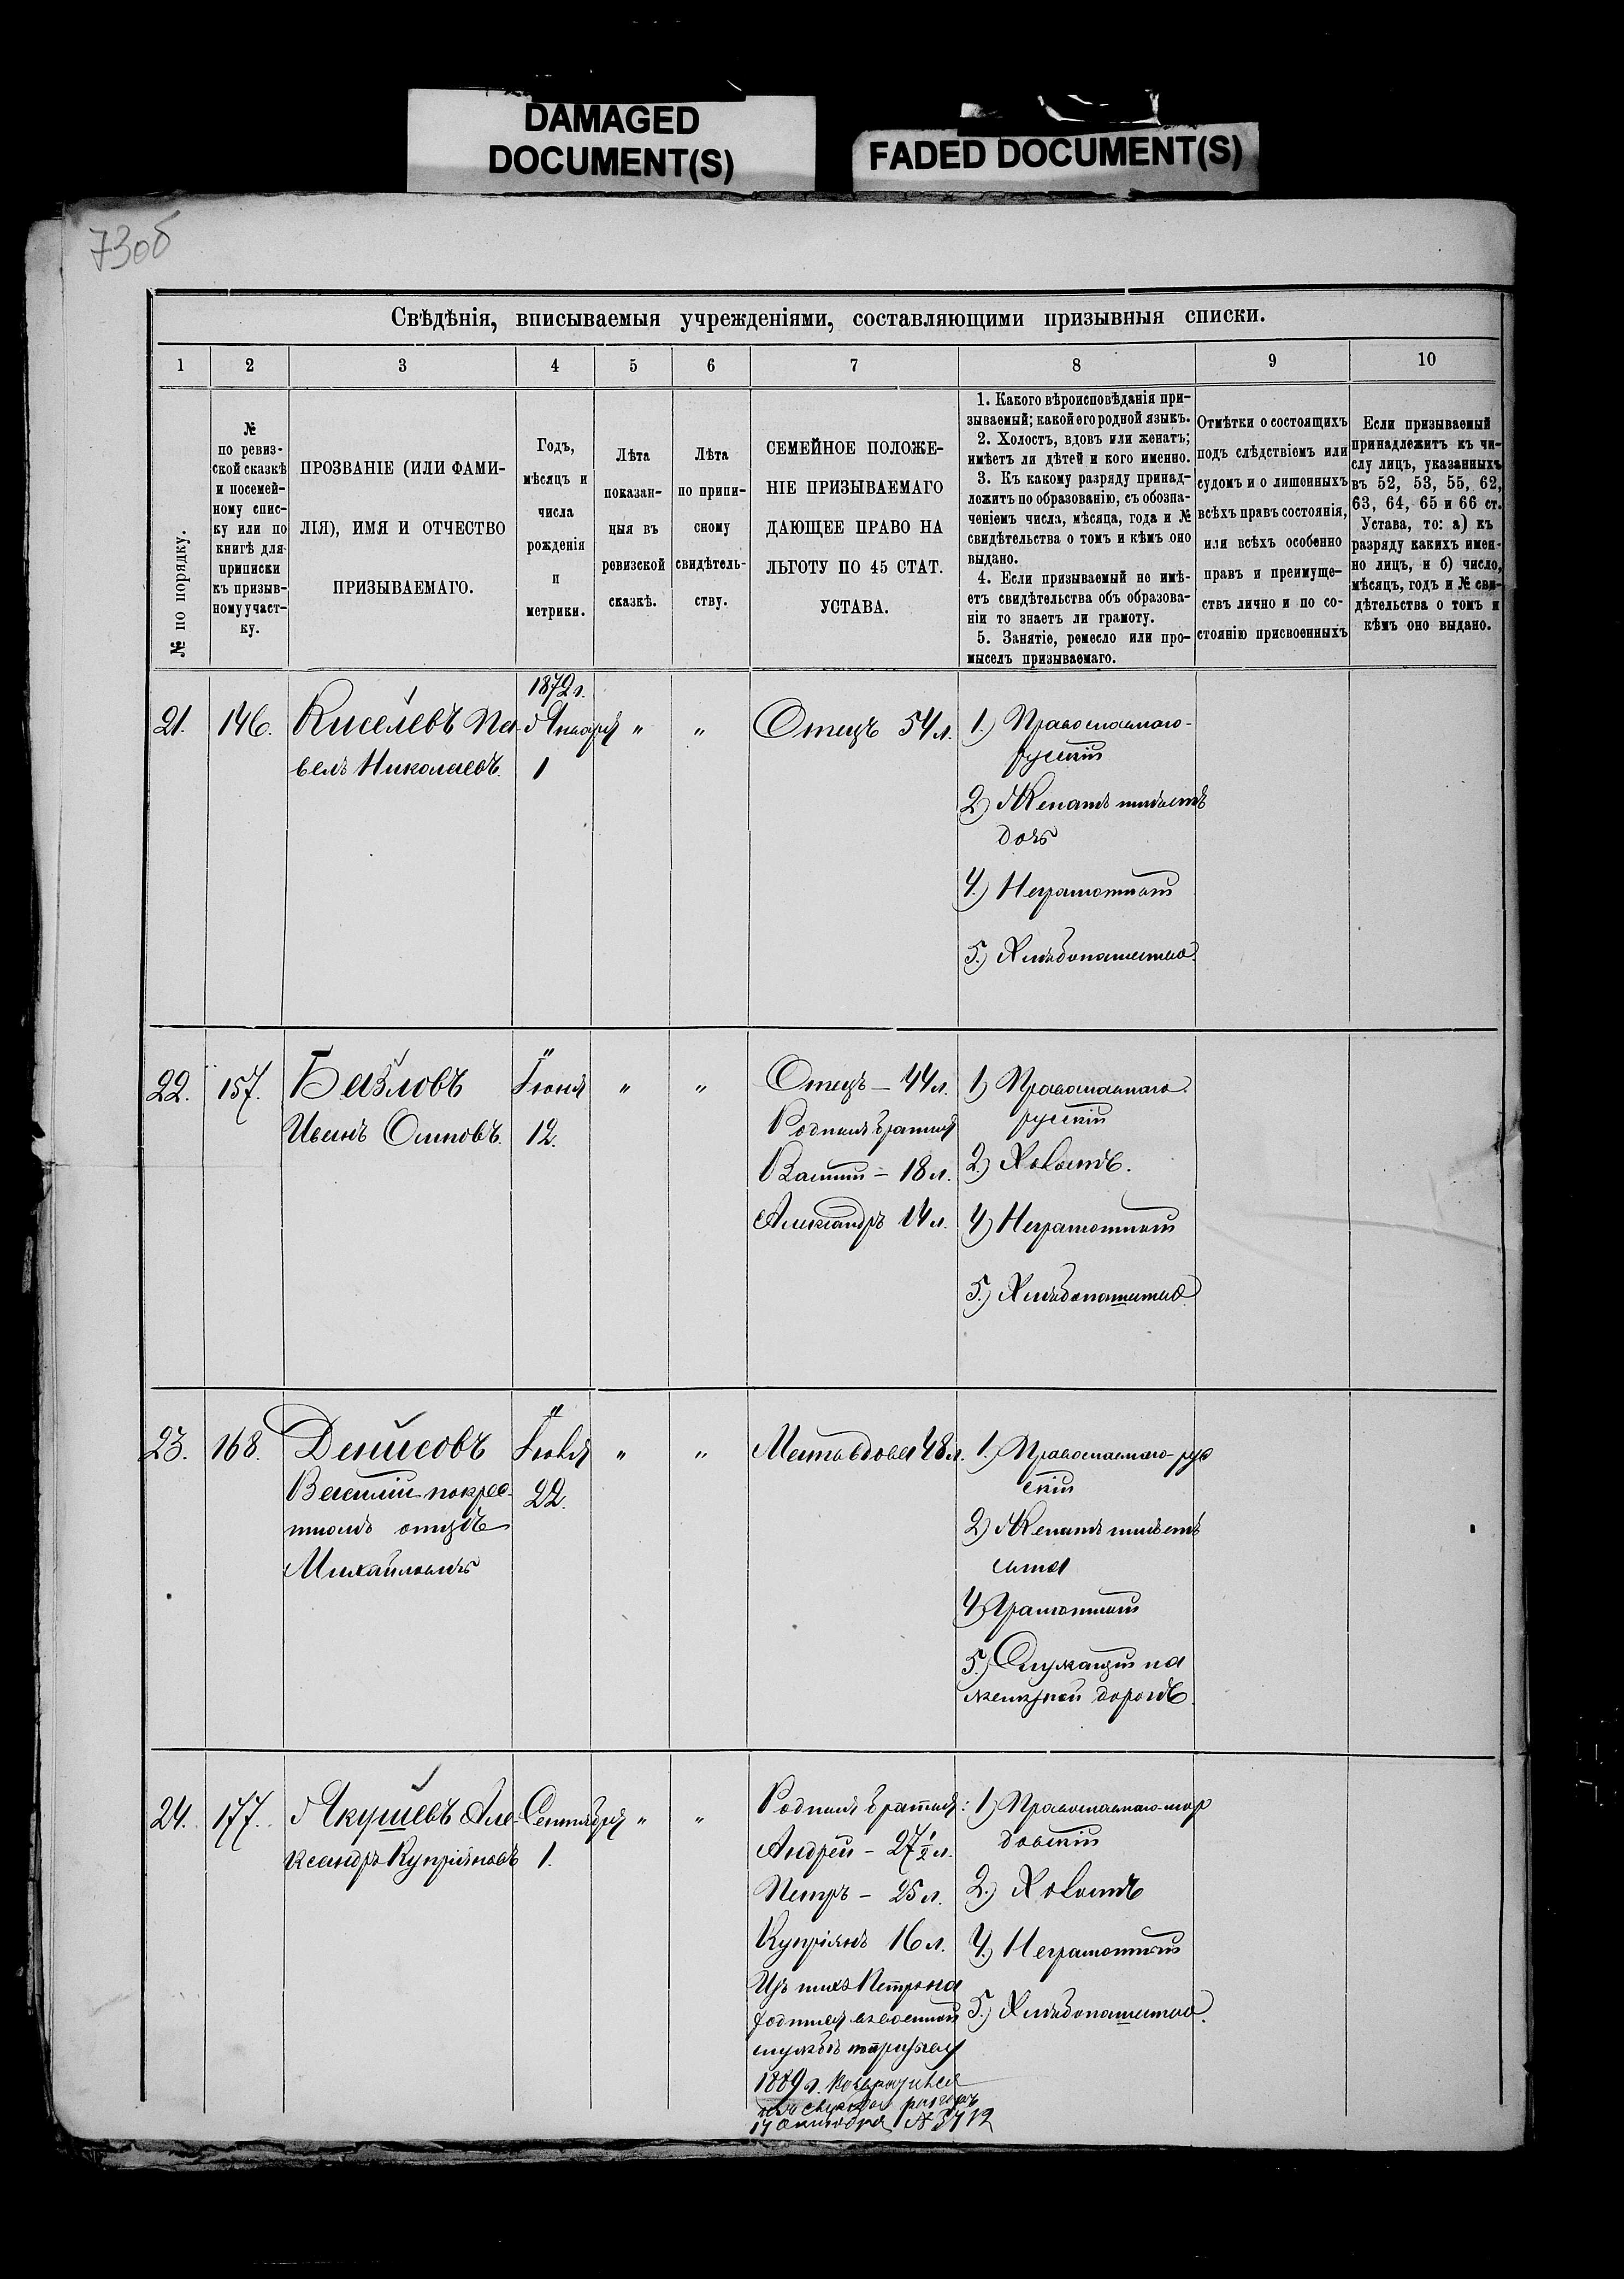 DAMAGED
DOCUMENT(S)
FADED DOCUMENT(S)
73об
Свѣдѣнія, вписываемыя учрежденіями, составляющими призывныя списки.
1 2 3 4 5 6 7 8 9 10
№ по порядку.
№
по ревиз-
ской сказкѣ
и посемей-
ному спис-
ку или по
книгѣ для
приписки
къ призыв-
ному участ-
ку.
ПРОЗВАНІЕ (ИЛИ ФАМИ-
ЛІЯ), ИМЯ И ОТЧЕСТВО
ПРИЗЫВАЕМАГО.
Годъ,
мѣсяцъ и
числа
рожденія
и
метрики.
Лѣта
показан-
ныя въ
ревизской
сказкѣ.
Лѣта
по припи-
сному
свидѣтель-
ству.
СЕМЕЙНОЕ ПОЛОЖЕ-
НІЕ ПРИЗЫВАЕМАГО
ДАЮЩЕЕ ПРАВО НА
ЛЬГОТУ ПО 45 СТАТ.
УСТАВА.
1. Какого вѣроисповѣданія при-
зываемый; какой его родной языкъ.
2. Холостъ, вдовъ или женатъ;
имѣетъ ли дѣтей и кого именно.
3. Къ какому разряду принад-
лежитъ по образованію, съ обозна-
ченіемъ числа, мѣсяца, года и №
свидѣтельства о томъ и кѣмъ оно
выдано.
4. Если призываемый не имѣ-
етъ свидѣтельства объ образова-
ніи то знаетъ ли грамоту.
5. Занятіе, ремесло или про-
мыселъ призываемаго.
Отмѣтки о состоящихъ
подъ слѣдствіемъ или
судомъ и о лишенныхъ
всѣхъ правъ состоянія,
или всѣхъ особенно
правъ и преимуще-
ствъ лично и по со-
стоянію присвоенныхъ
Если призываемый
принадлежитъ къ чи-
слу лицъ, указанныхъ
въ 52, 53, 55, 62,
63, 64, 65 и 66 ст.
Устава, то: а) къ
разряду какихъ имен-
но лицъ, и б) число,
мѣсяцъ, годъ и № сви-
дѣтельства о томъ и
кѣмъ оно выдано.
21. 146.
Киселевъ Па-
велъ Николаевъ.
1872 г.
Января
1
" "
Отецъ 54 л.
1.) Православнаго-
русскій
2) Женатъ имѣетъ
дочь
4.) Неграмотный
5.) Хлѣбопашество.
22. 157.
Иванъ Осиповъ.
"
Іюня
12.
" "
Отецъ — 44 л.
Родныя братья
Василій — 18 л.
Александръ 14 л.
1) Православнаго
русскій
2.) Холостъ.
4) Неграмотный
5.) Хлѣбопашество
23. 168.
Денисовъ
Василій по крес-
тномъ отцѣ
Михайловъ
"
Іюля
22.
" "
Мать вдова 48 л.
1.) Православнаго-рус
скій
2) Женатъ имѣетъ
сына
4) Грамотный
5.) Служащій на
желѣзной дорогѣ.
24. 177.
Якушевъ Але-
ксандръ Купріяновъ
Сентября
1.
" "
Родныя братья:
Андрей — 27 1/2 л.
Петръ — 25 л.
Купріянъ 16 л.
Изъ нихъ Петръ на
ходится на военной
службѣ призыва
1889 г.
17 октября № 3712
1) Православнаго-мор
довскій
2.) Холостъ
4.) Неграмотный
5.) Хлѣбопашество.